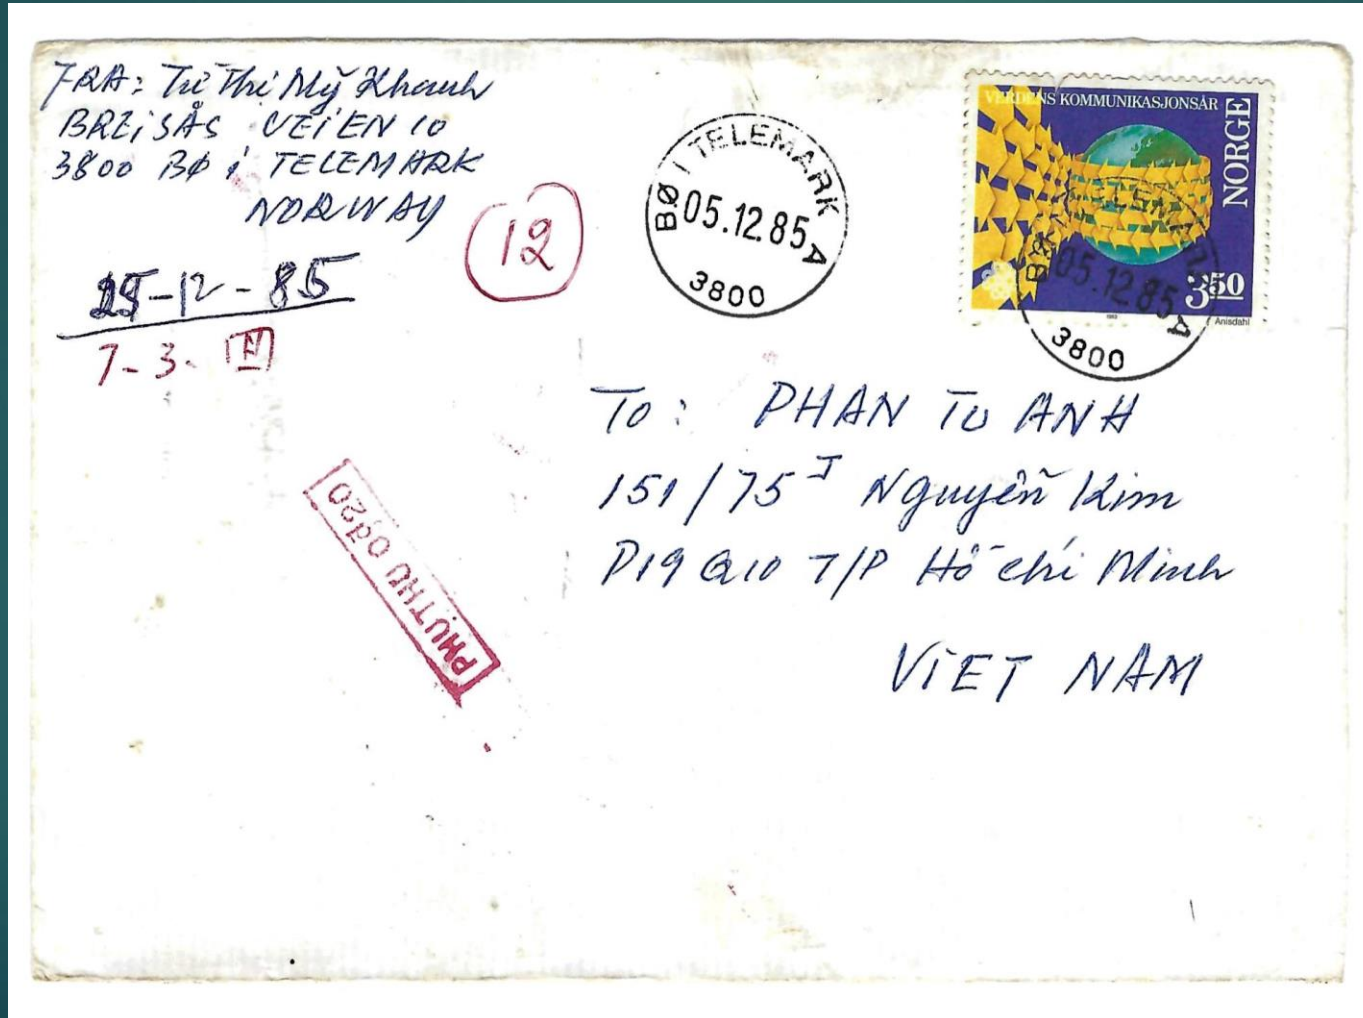 FRA: Từ Thị Mỹ Khanh
BREiSÅS VEiEN 10
3800 BØ i TELEMARK
NORWAY
12
25-12-85
7-3-
BØ I TELEMARK
05.12.85 A
3800
VERDENS KOMMUNIKASJONSÅR
NORGE
3.50
Anisdahl
05.12.85 A
3800
To: PHAN TU ANH
151/75 J Nguyễn Kim
P19 Q10 T/P Hồ chí Minh
ViET NAM
PHUTHU 0đ20